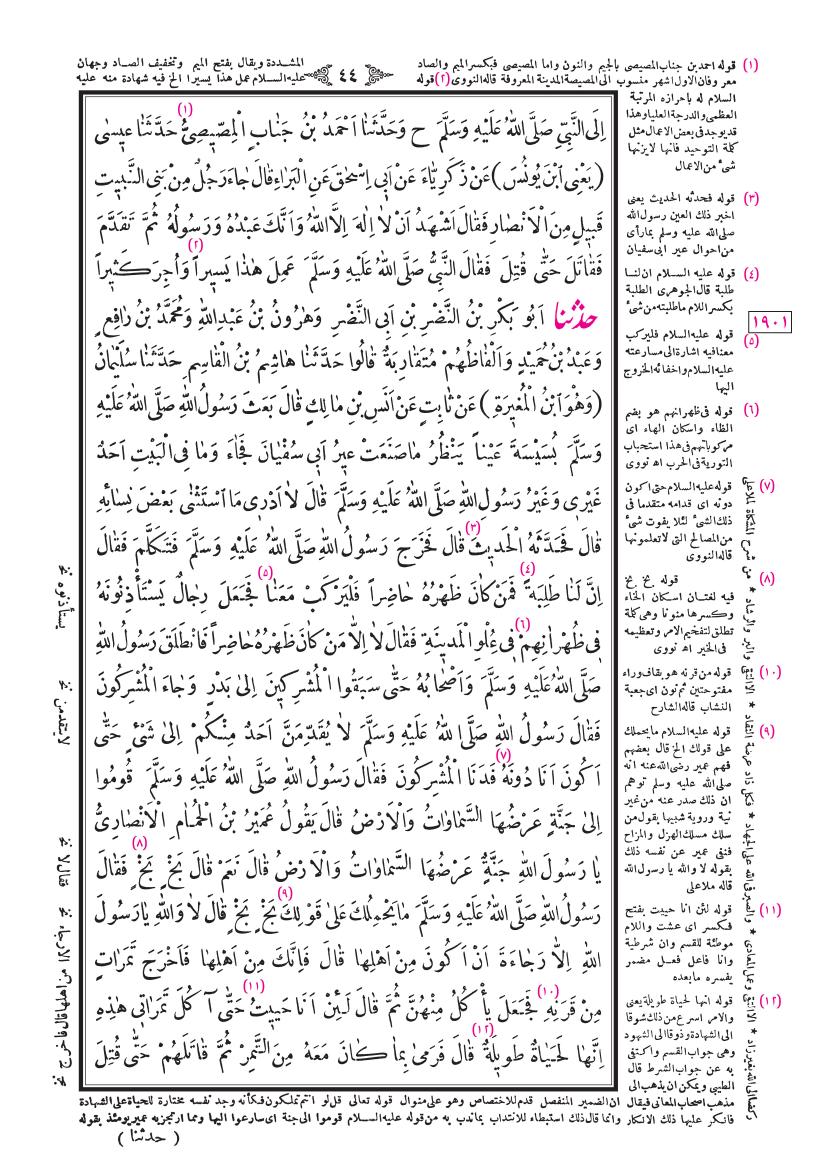 (١) قوله احمد بن جناب المصيصى بالجيم والنون واما المصيصى فبكسر الميم والصاد
المشددة ويقال بفتح الميم وتخفيف الصاد وجهان
معروفان الاول اشهر منسوب الى المصيصة المدينة المعروفة قاله النووى (٢) قوله
عليه السلام عمل هذا يسيرا الخ فيه شهادة منه عليه
٤٤
السلام له باحرازه المرتبة
العظمى والدرجة العليا وهذا
قد يوجد فى بعض الاعمال مثل
كلمة التوحيد فانها لا يزنها
شئ من الاعمال
(٣) قوله فحدثه الحديث يعنى
اخبر ذلك العين رسول الله
صلى الله عليه وسلم بما رأى
من احوال عير ابى سفيان
(٤) قوله عليه السلام ان لنا
طلبة قال الجوهرى الطلبة
بكسر اللام ما طلبته من شئ
١٩٠١
(٥) قوله عليه السلام فليركب
معنا فيه اشارة الى مسارعته
عليه السلام واخفائه الخروج
اليها
(٦) قوله فى ظهرانهم هو بضم
الظاء واسكان الهاء اى
مركوباتهم فى هذا استحباب
التورية فى الحرب اه نووى
(٧) قوله عليه السلام حتى اكون
دونه اى قدامه متقدما فى
ذلك الشئ لئلا يفوت شئ
من المصالح التى لا تعلمونها
قاله النووى
(٨) قوله بخ بخ
فيه لغتان اسكان الخاء
وكسرها منونا وهى كلمة
تطلق لتفخيم الامر وتعظيمه
فى الخير اه نووى
(١٠) قوله من قرنه هو بقاف وراء
مفتوحتين ثم نون اى جعبة
النشاب قاله الشارح
(٩) قوله عليه السلام ما يحملك
على قولك الخ قال بعضهم
فهم عمير رضى الله عنه انه
صلى الله عليه وسلم توهم
ان ذلك صدر عنه من غير
نية وروية شبيها بقول من
سلك مسلك الهزل والمزاح
فنفى عمير عن نفسه ذلك
بقوله لا والله يا رسول الله
قاله ملا على
(١١) قوله لئن انا حييت بفتح
فكسر اى عشت واللام
موطئة للقسم وان شرطية
وانا فاعل فعل مضمر
يفسره ما بعده
(١٢) قوله انها لحياة طويلة يعنى
والامر اسرع من ذلك شوقا
الى الشهادة وذوقا الى الشهود
وهى جواب القسم واكتفى
به عن جواب الشرط قال
الطيبى ويمكن ان يذهب الى
اِلَى النَّبِيِّ صَلَّى اللهُ عَلَيْهِ وَسَلَّمَ ح وَحَدَّثَنَا اَحْمَدُ بْنُ جَنَابٍ الْمِصِّيصِىُّ (١) حَدَّثَنَا عِيسٰى
(يَعْنِى ابْنَ يُونُسَ) عَنْ زَكَرِيَّاءَ عَنْ اَبِى اِسْحٰقَ عَنِ الْبَرَاءِ قَالَ جَاءَ رَجُلٌ مِنْ بَنِى النَّبِيتِ
قَبِيلٍ مِنَ الْاَنْصَارِ فَقَالَ اَشْهَدُ اَنْ لَا اِلٰهَ اِلَّا اللهُ وَاَنَّكَ عَبْدُهُ وَرَسُولُهُ ثُمَّ تَقَدَّمَ
فَقَاتَلَ حَتّٰى قُتِلَ فَقَالَ النَّبِىُّ صَلَّى اللهُ عَلَيْهِ وَسَلَّمَ عَمِلَ هٰذَا يَسِيراً (٢) وَاُجِرَ كَثِيراً
حدثنا اَبُو بَكْرِ بْنُ النَّضْرِ بْنِ اَبِى النَّضْرِ وَهٰرُونُ بْنُ عَبْدِ اللهِ وَمُحَمَّدُ بْنُ رَافِعٍ
وَعَبْدُ بْنُ حُمَيْدٍ وَاَلْفَاظُهُمْ مُتَقَارِبَةٌ قَالُوا حَدَّثَنَا هَاشِمُ بْنُ الْقَاسِمِ حَدَّثَنَا سُلَيْمَانُ
(وَهُوَ ابْنُ الْمُغِيرَةِ) عَنْ ثَابِتٍ عَنْ اَنَسِ بْنِ مَالِكٍ قَالَ بَعَثَ رَسُولُ اللهِ صَلَّى اللهُ عَلَيْهِ
وَسَلَّمَ بُسَيْسَةَ عَيْناً يَنْظُرُ مَا صَنَعَتْ عِيرُ اَبِى سُفْيَانَ فَجَاءَ وَمَا فِى الْبَيْتِ اَحَدٌ
غَيْرِى وَغَيْرُ رَسُولِ اللهِ صَلَّى اللهُ عَلَيْهِ وَسَلَّمَ قَالَ لَا اَدْرِى مَا اسْتَثْنٰى بَعْضَ نِسَائِهِ
قَالَ فَحَدَّثَهُ الْحَدِيثَ (٣) قَالَ فَخَرَجَ رَسُولُ اللهِ صَلَّى اللهُ عَلَيْهِ وَسَلَّمَ فَتَكَلَّمَ فَقَالَ
اِنَّ لَنَا طَلِبَةً (٤) فَمَنْ كَانَ ظَهْرُهُ حَاضِراً فَلْيَرْكَبْ مَعَنَا (٥) فَجَعَلَ رِجَالٌ يَسْتَأْذِنُونَهُ
فِى ظُهْرَانِهِمْ (٦) فِى عُلْوِ الْمَدِينَةِ فَقَالَ لَا اِلَّا مَنْ كَانَ ظَهْرُهُ حَاضِراً فَانْطَلَقَ رَسُولُ اللهِ
صَلَّى اللهُ عَلَيْهِ وَسَلَّمَ وَاَصْحَابُهُ حَتّٰى سَبَقُوا الْمُشْرِكِينَ اِلٰى بَدْرٍ وَجَاءَ الْمُشْرِكُونَ
فَقَالَ رَسُولُ اللهِ صَلَّى اللهُ عَلَيْهِ وَسَلَّمَ لَا يُقَدِّمَنَّ اَحَدٌ مِنْكُمْ اِلٰى شَىْءٍ حَتّٰى
اَكُونَ اَنَا دُونَهُ (٧) فَدَنَا الْمُشْرِكُونَ فَقَالَ رَسُولُ اللهِ صَلَّى اللهُ عَلَيْهِ وَسَلَّمَ قُومُوا
اِلٰى جَنَّةٍ عَرْضُهَا السَّمَاوَاتُ وَالْاَرْضُ قَالَ يَقُولُ عُمَيْرُ بْنُ الْحُمَامِ الْاَنْصَارِىُّ
يَا رَسُولَ اللهِ جَنَّةٌ عَرْضُهَا السَّمَاوَاتُ وَالْاَرْضُ قَالَ نَعَمْ قَالَ بَخٍ بَخٍ (٨) فَقَالَ
رَسُولُ اللهِ صَلَّى اللهُ عَلَيْهِ وَسَلَّمَ مَا يَحْمِلُكَ عَلٰى قَوْلِكَ (٩) بَخٍ بَخٍ قَالَ لَا وَاللهِ يَا رَسُولَ
اللهِ اِلَّا رَجَاءَةَ اَنْ اَكُونَ مِنْ اَهْلِهَا قَالَ فَاِنَّكَ مِنْ اَهْلِهَا فَاَخْرَجَ تَمَرَاتٍ
مِنْ قَرَنِهِ (١٠) فَجَعَلَ يَأْكُلُ مِنْهُنَّ ثُمَّ قَالَ لَئِنْ اَنَا حَيِيتُ (١١) حَتّٰى آكُلَ تَمَرَاتِى هٰذِهِ
اِنَّهَا لَحَيَاةٌ طَوِيلَةٌ (١٢) قَالَ فَرَمٰى بِمَا كَانَ مَعَهُ مِنَ التَّمْرِ ثُمَّ قَاتَلَهُمْ حَتّٰى قُتِلَ
يستأذنوه نخ
لا يتقدمن نخ
فقال لا نخ
مذهب اصحاب المعانى فيقال ان الضمير المنفصل قدم للاختصاص وهو على منوال قوله تعالى قل لو انتم تملكون فكأنه وجد نفسه مختارة للحياة على الشهادة
فانكر عليها ذلك الانكار وانما قال ذلك استبطاء للانتداب بما ندب به من قوله عليه السلام قوموا الى جنة اى سارعوا اليها ومما ارتجز به عمير يومئذ بقوله
ركضا الى الله بغير زاد * الا التقى وعمل المعاد * والصبر فى الله على الجهاد * فكل زاد عرضة النفاد * الا التقى والبر والرشاد * من شرح المشكاة لملا على
( حدثنا )